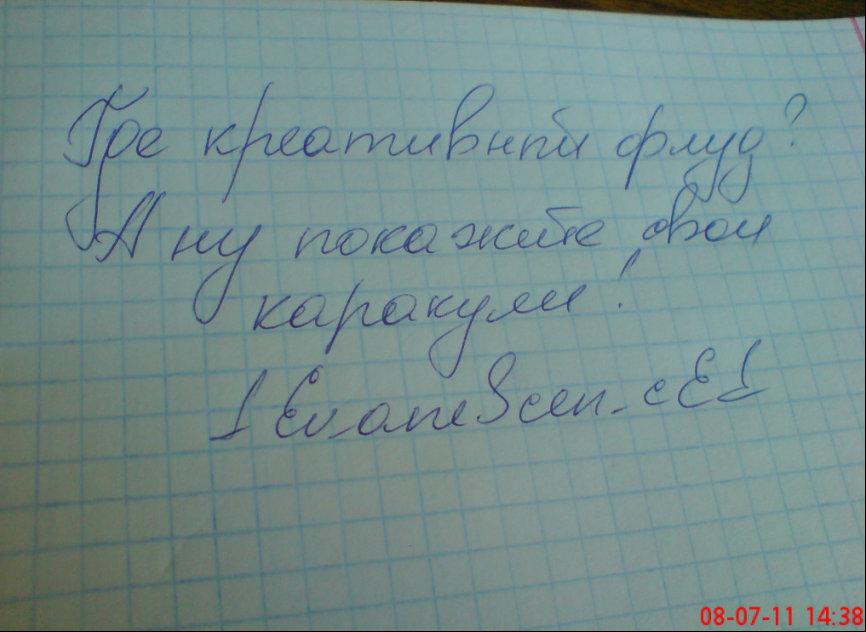 Где креативный флуд?
А ну покажите свои
каракули!
08-07-11 14:38